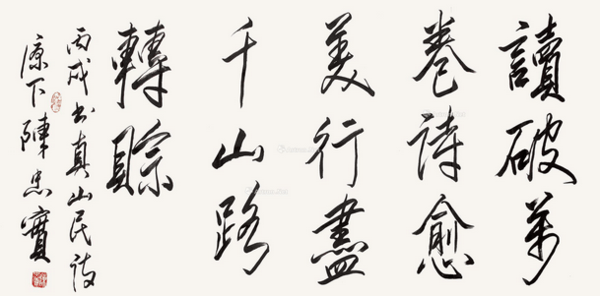 讀破萬
卷詩愈
美行盡
千山路
轉賒
丙戌書真山民詩
原下陳忠實